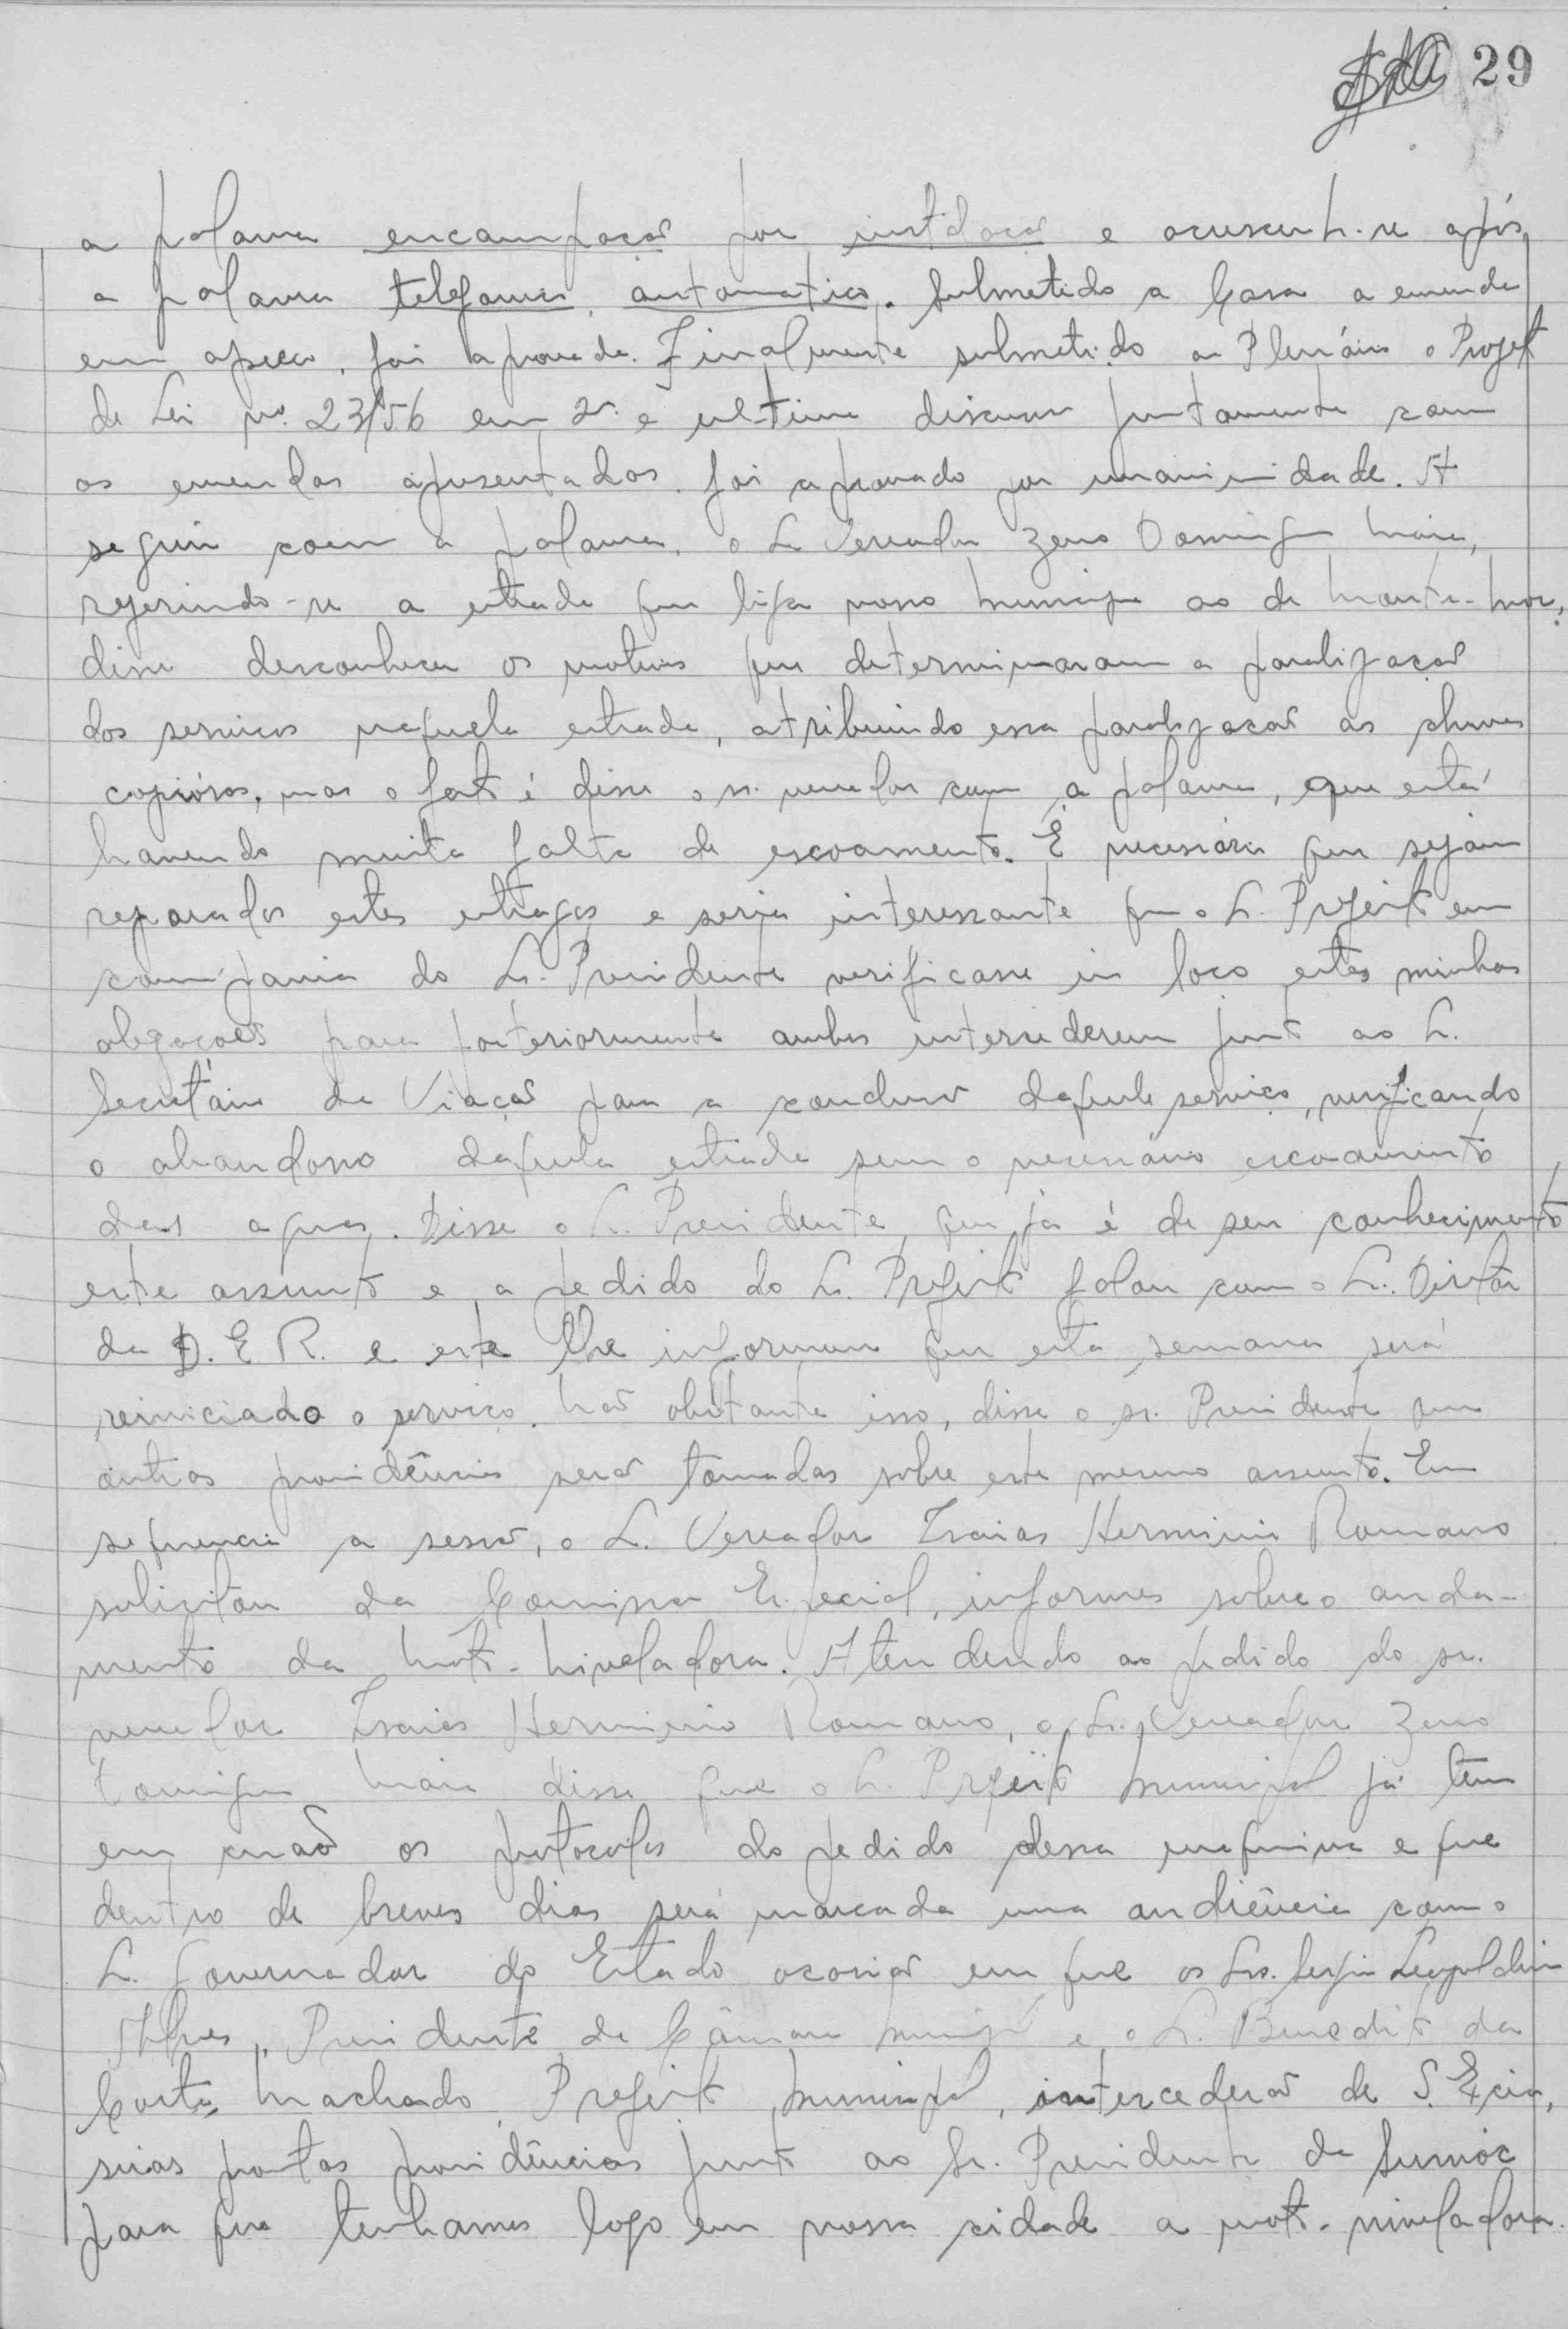 29
a palavra encampação por instalação e acrescente-se após
a palavra telefonica, automatica. Submetido a Casa a emenda
em apreço, foi aprovada. Finalmente submetido ao Plenário o Projeto
de Lei nº. 23/56 em 2ª. e ultima discussão juntamente com
as emendas apresentadas foi aprovado por unanimidade. A
seguir com a palavra, o Sr. Vereador Zeno Domingues Maia,
referindo-se a estrada que liga nosso Municipio ao de Monte-Mor,
disse desconhecer os motivos que determinaram a paralização
dos serviços naquela estrada, atribuindo essa paralização as chuvas
copiósas, mas o fato é disse o sr. vereador com a palavra, que está
havendo muita falta de escoamento. É necessário que sejam
reparados estes estragos e seria interessante que o Sr. Prefeito em
companhia do Sr. Presidente verificasse in loco estas minhas
alegações para posteriormente ambos intercederem junto ao Sr.
Secretário da Viação para a conclusão daquele serviço, verificando
o abandono daquela estrada sem o necessário escoamento
das aguas. Disse o Sr. Presidente, que já é de seu conhecimento
este assunto e a pedido do Sr. Prefeito falou com o Sr. Diretor
da D. E. R. e este lhe informou que esta semana será
reiniciado o serviço. Não obstante isso, disse o sr. Presidente que
outras providências serão tomadas sobre este mesmo assunto. Em
sequencia a sessão, o Sr. Vereador Isaias Herminio Romano
solicitou da Comissão Especial, informes sobre o anda-
mento da Moto-Niveladora. Atendendo ao pedido do sr.
vereador Isaias Herminio Romano, o Sr. Vereador Zeno
Domingues Maia disse que o Sr. Prefeito Municipal já tem
em mão os protocolos do pedido dessa maquina e que
dentro de breves dias será marcada uma audiência com o
Sr. Governador do Estado ocasião em que os Srs. Leopoldino
Alves, Presidente da Câmara Municipal e o Sr. Benedito da
Costa Machado, Prefeito Municipal, intercederão de S. Excia,
suas prontas providências junto ao Sr. Presidente da
para que tenhamos logo em nossa cidade a moto-niveladora.